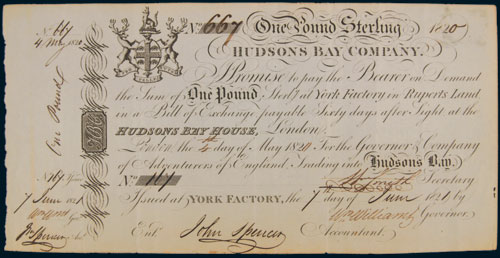 No. 667
4 May 1820
One Pound
No. 667 One Pound Sterling 1820
HUDSONS BAY COMPANY.
Promise to pay the Bearer on Demand
the Sum of One Pound Sterl.g at York Factory in Ruperts Land,
in a Bill of Exchange payable Sixty days after Sight at the
HUDSONS BAY HOUSE, London.
London, the 4th day of May 1820 For the Governor & Company
of Adventurers of England Trading into Hudsons Bay.
No. 117
Secretary
Issued at YORK FACTORY, the 7 day of June 1821 by
Wm Williams, Governor
Ent. John Spencer Accountant.
No. 117
7 June 1821
Wm Wms Gov.
J. Spencer Acc.